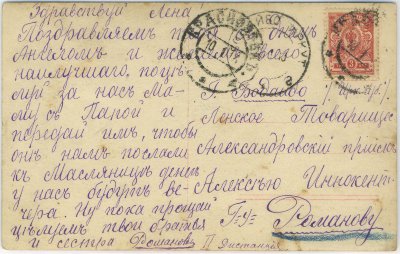 Здравствуй Лена
Поздравляемъ
Ангеломъ и всего
наилучшаго, поцѣ-
луй за насъ Ма-
му съ Папой и
передай имъ, чтобы
они намъ послали
къ Масляницѣ денегъ
у насъ будутъ ве-
чера. Ну пока прощай
цѣлуемъ твои братья
и сестра Романовы
Г. Бодайбо
Ленское Товарищес
Александровскій прiискъ
Алексѣю Иннокент
Г-ну Романову
П Дистанцiя